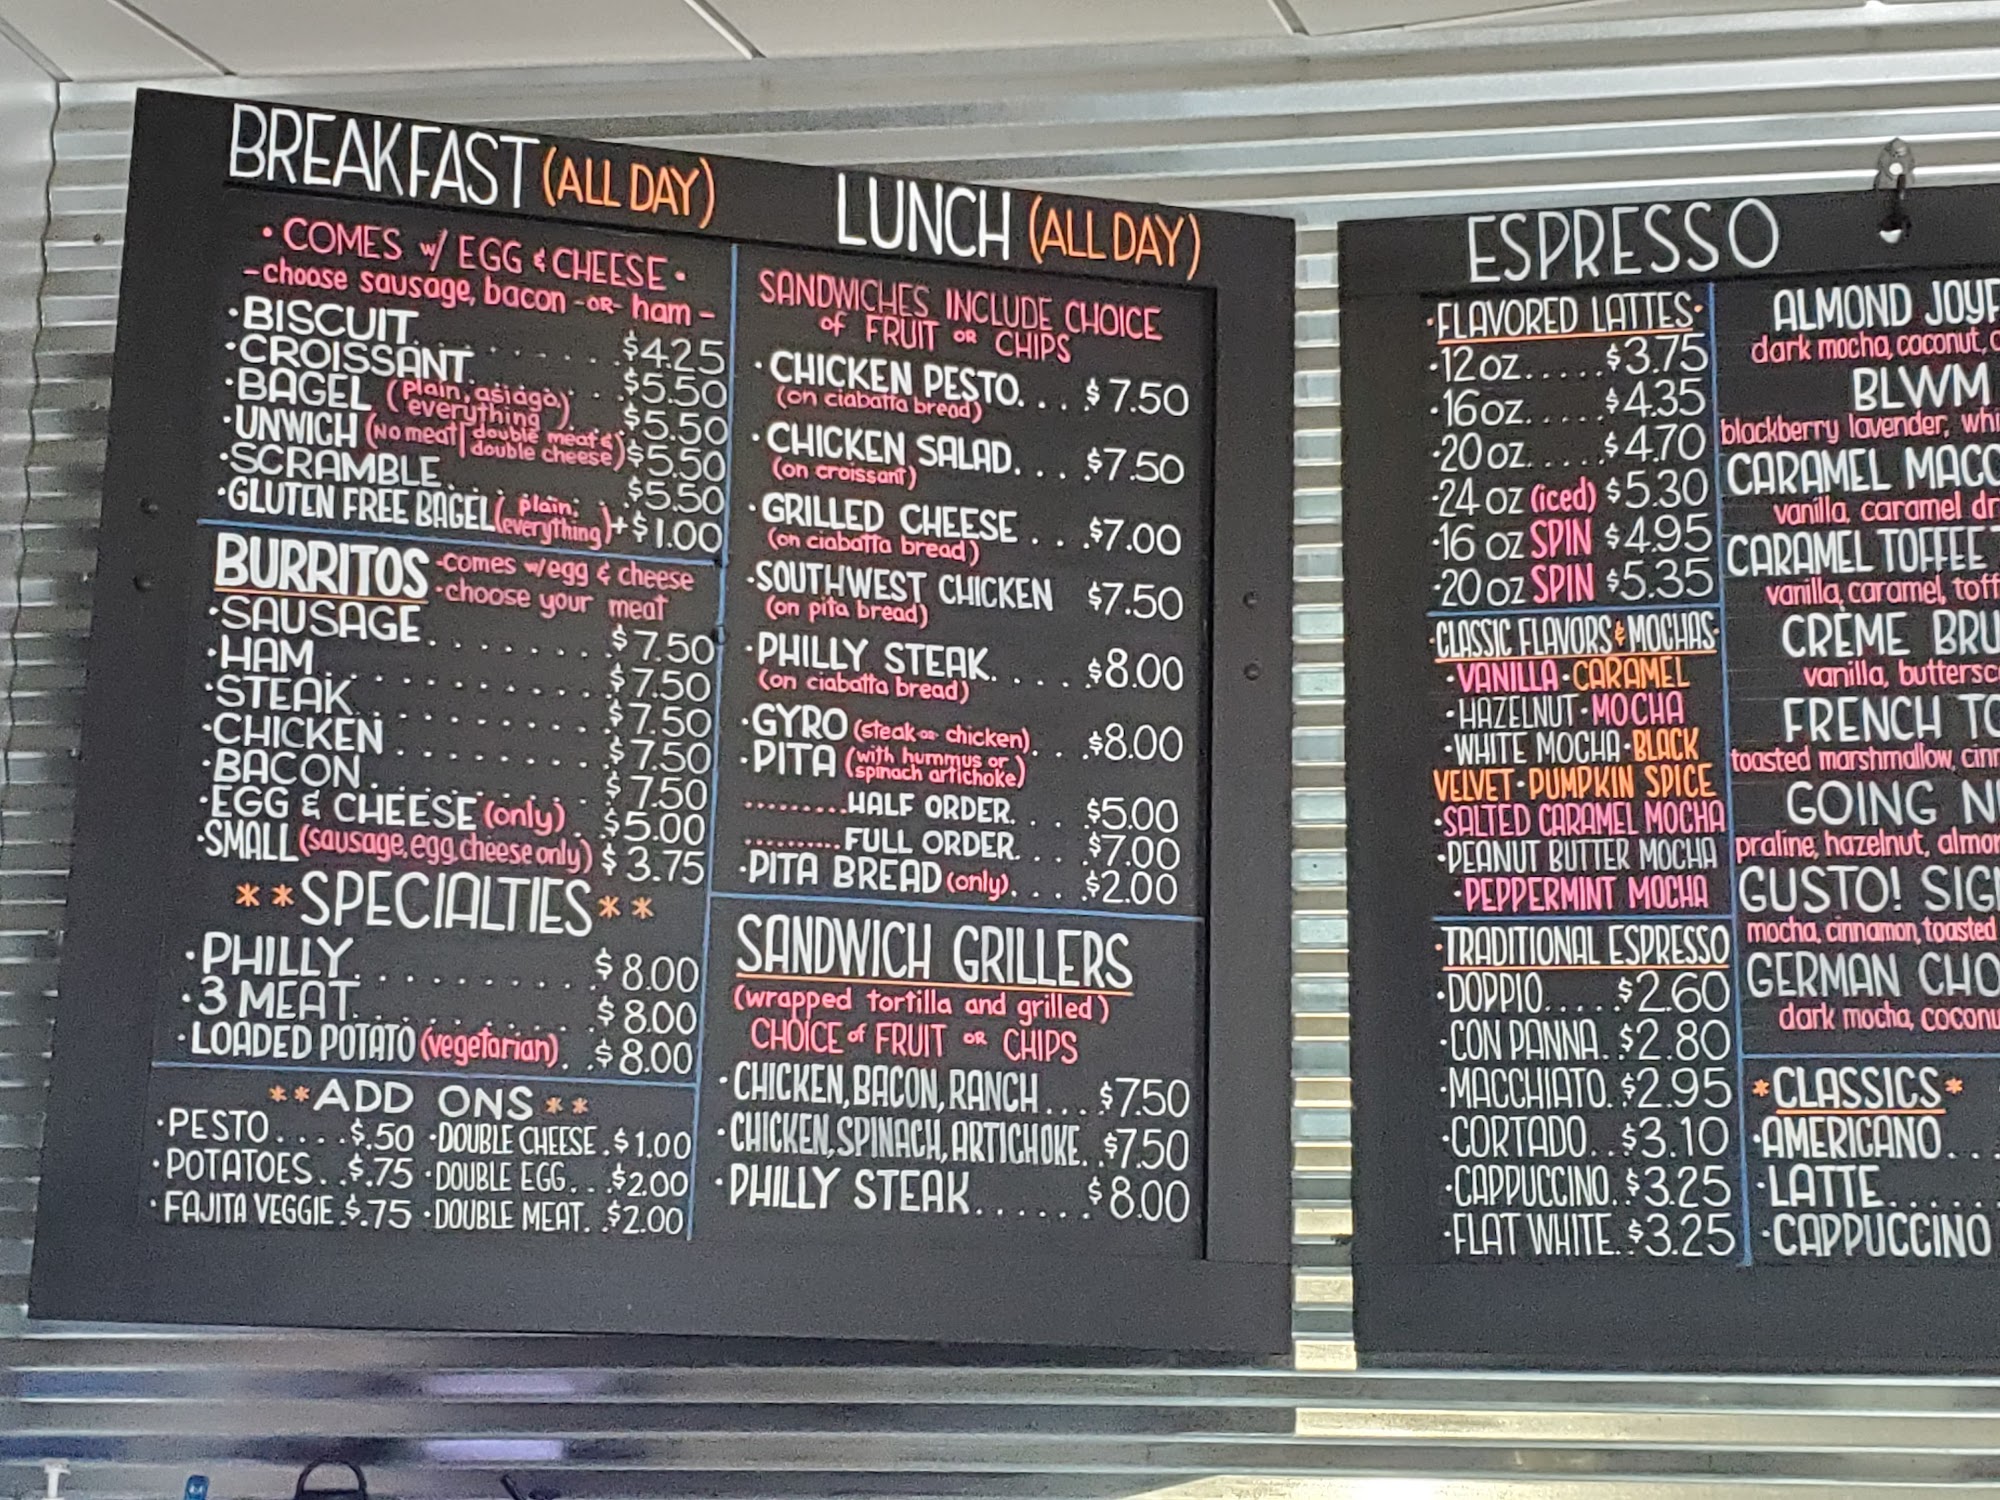 BREAKFAST (ALL DAY)
• COMES w/ EGG & CHEESE •
- choose sausage, bacon -OR- ham -
•BISCUIT........$4.25
•CROISSANT.......$5.50
•BAGEL (plain, asiago, everything)..$5.50
•UNWICH (No meat| double meat & double cheese) $5.50
•SCRAMBLE.......$5.50
•GLUTEN FREE BAGEL (plain, everything) +$1.00
BURRITOS -comes w/egg & cheese
-choose your meat
•SAUSAGE........$7.50
•HAM............$7.50
•STEAK..........$7.50
•CHICKEN........$7.50
•BACON..........$7.50
•EGG & CHEESE (only).$5.00
•SMALL (sausage, egg, cheese only) $3.75
**SPECIALTIES**
•PHILLY.........$8.00
•3 MEAT.........$8.00
•LOADED POTATO (vegetarian)..$8.00
**ADD ONS**
•PESTO....$.50 •DOUBLE CHEESE.$1.00
•POTATOES..$.75 •DOUBLE EGG...$2.00
•FAJITA VEGGIE.$.75 •DOUBLE MEAT..$2.00
LUNCH (ALL DAY)
SANDWICHES INCLUDE CHOICE
of FRUIT OR CHIPS
•CHICKEN PESTO....$7.50
(on ciabatta bread)
•CHICKEN SALAD....$7.50
(on croissant)
•GRILLED CHEESE...$7.00
(on ciabatta bread)
•SOUTHWEST CHICKEN $7.50
(on pita bread)
•PHILLY STEAK.....$8.00
(on ciabatta bread)
•GYRO (steak or chicken)...$8.00
•PITA (with hummus or spinach artichoke)
.........HALF ORDER...$5.00
.........FULL ORDER....$7.00
•PITA BREAD (only)....$2.00
SANDWICH GRILLERS
(wrapped tortilla and grilled)
CHOICE of FRUIT OR CHIPS
•CHICKEN, BACON, RANCH...$7.50
•CHICKEN, SPINACH, ARTICHOKE..$7.50
•PHILLY STEAK......$8.00
ESPRESSO
•FLAVORED LATTES•
•12 oz.....$3.75
•16 oz.....$4.35
•20 oz.....$4.70
•24 oz (iced) $5.30
•16 oz SPIN $4.95
•20 oz SPIN $5.35
•CLASSIC FLAVORS & MOCHAS•
•VANILLA•CARAMEL
•HAZELNUT•MOCHA
•WHITE MOCHA•BLACK
VELVET•PUMPKIN SPICE
•SALTED CARAMEL MOCHA
•PEANUT BUTTER MOCHA
•PEPPERMINT MOCHA
•TRADITIONAL ESPRESSO
•DOPPIO....$2.60
•CON PANNA.$2.80
•MACCHIATO.$2.95
•CORTADO..$3.10
•CAPPUCCINO.$3.25
•FLAT WHITE.$3.25
ALMOND JOY
dark mocha, coconut,
BLWM
blackberry lavender, whi
CARAMEL MACC
vanilla, caramel dr
CARAMEL TOFFEE
vanilla, caramel, toff
CRÈME BRU
vanilla, buttersc
FRENCH TO
toasted marshmallow, cinn
GOING N
praline, hazelnut, almon
GUSTO! SIG
mocha, cinnamon, toasted
GERMAN CHO
dark mocha, coconu
*CLASSICS*
•AMERICANO...
•LATTE......
•CAPPUCCINO